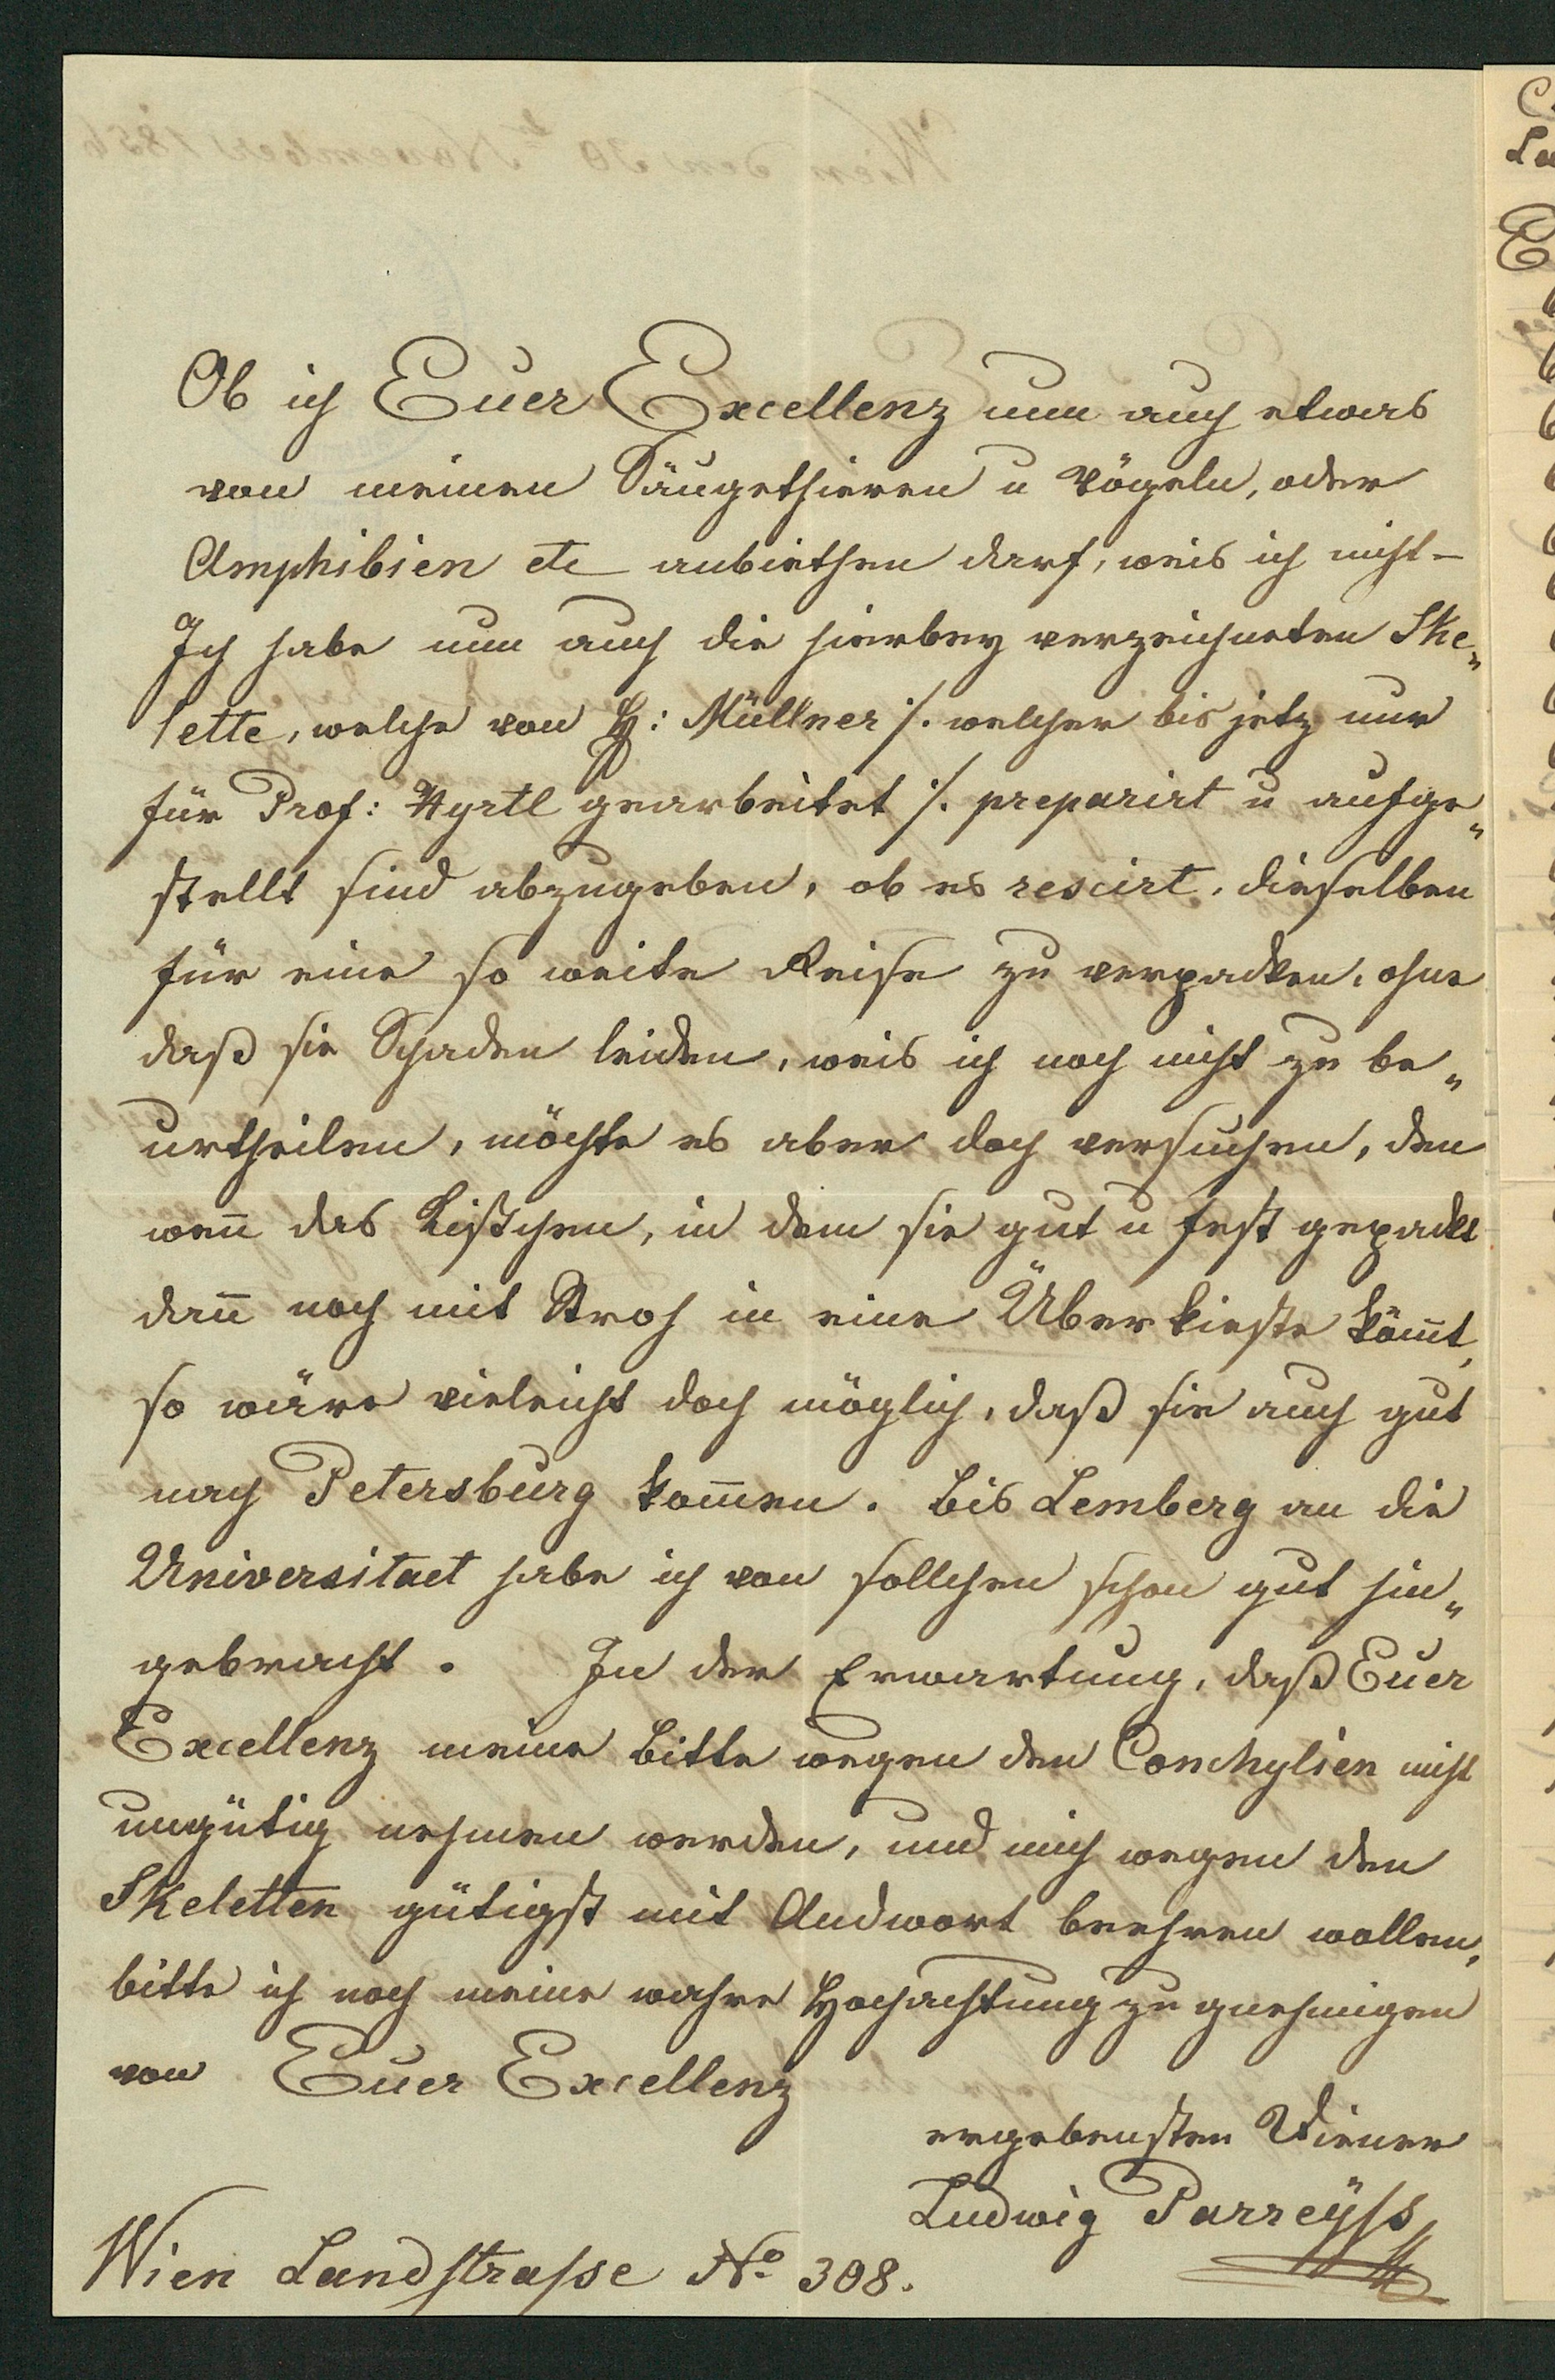 Ob ich Euer Excellenz nun auch etwas
von meinen Säugethieren u Vögeln, oder
Amphibien etc anbiethen darf, weis ich nicht -
Ich habe nun auch die hierbey verzeichneten Ske„
lette, welche von H: Müllner /. welcher bis jetz nur
für Prof: Hyrtl gearbeitet /. preparirt u aufge„
stellt sind abzugeben, ob es rescirt, dieselben
für eine so weite Reise zu verpacken, ohne
daß sie Schaden leiden, weis ich noch nicht zu be„
urtheilen, möchte es aber doch versuchen, den
weñ das Kistchen, in dem sie gut u fest gepackt
dañ noch mit Stroh in eine Überkieste köm̃t,
so wäre vieleicht doch möglich, daß sie auch gut
nach Petersburg kom̃en. Bis Lemberg an die
Universitaet habe ich von sollchen schon gut hin„
gebracht. In der Erwartung, daß Euer
Excellenz meine Bitte wegen den Conchylien nicht
ungütig nehmen werden, und mich wegen den
Skeletten gütigst mit Andwort beehren wollen,
bitte ich noch meine wahre Hochachtung zu gnehmigen
von Euer Excellenz
ergebensten Diener
Ludwig Parreyss
Wien Landstrasse No 308.
Wien den 30t November 1856